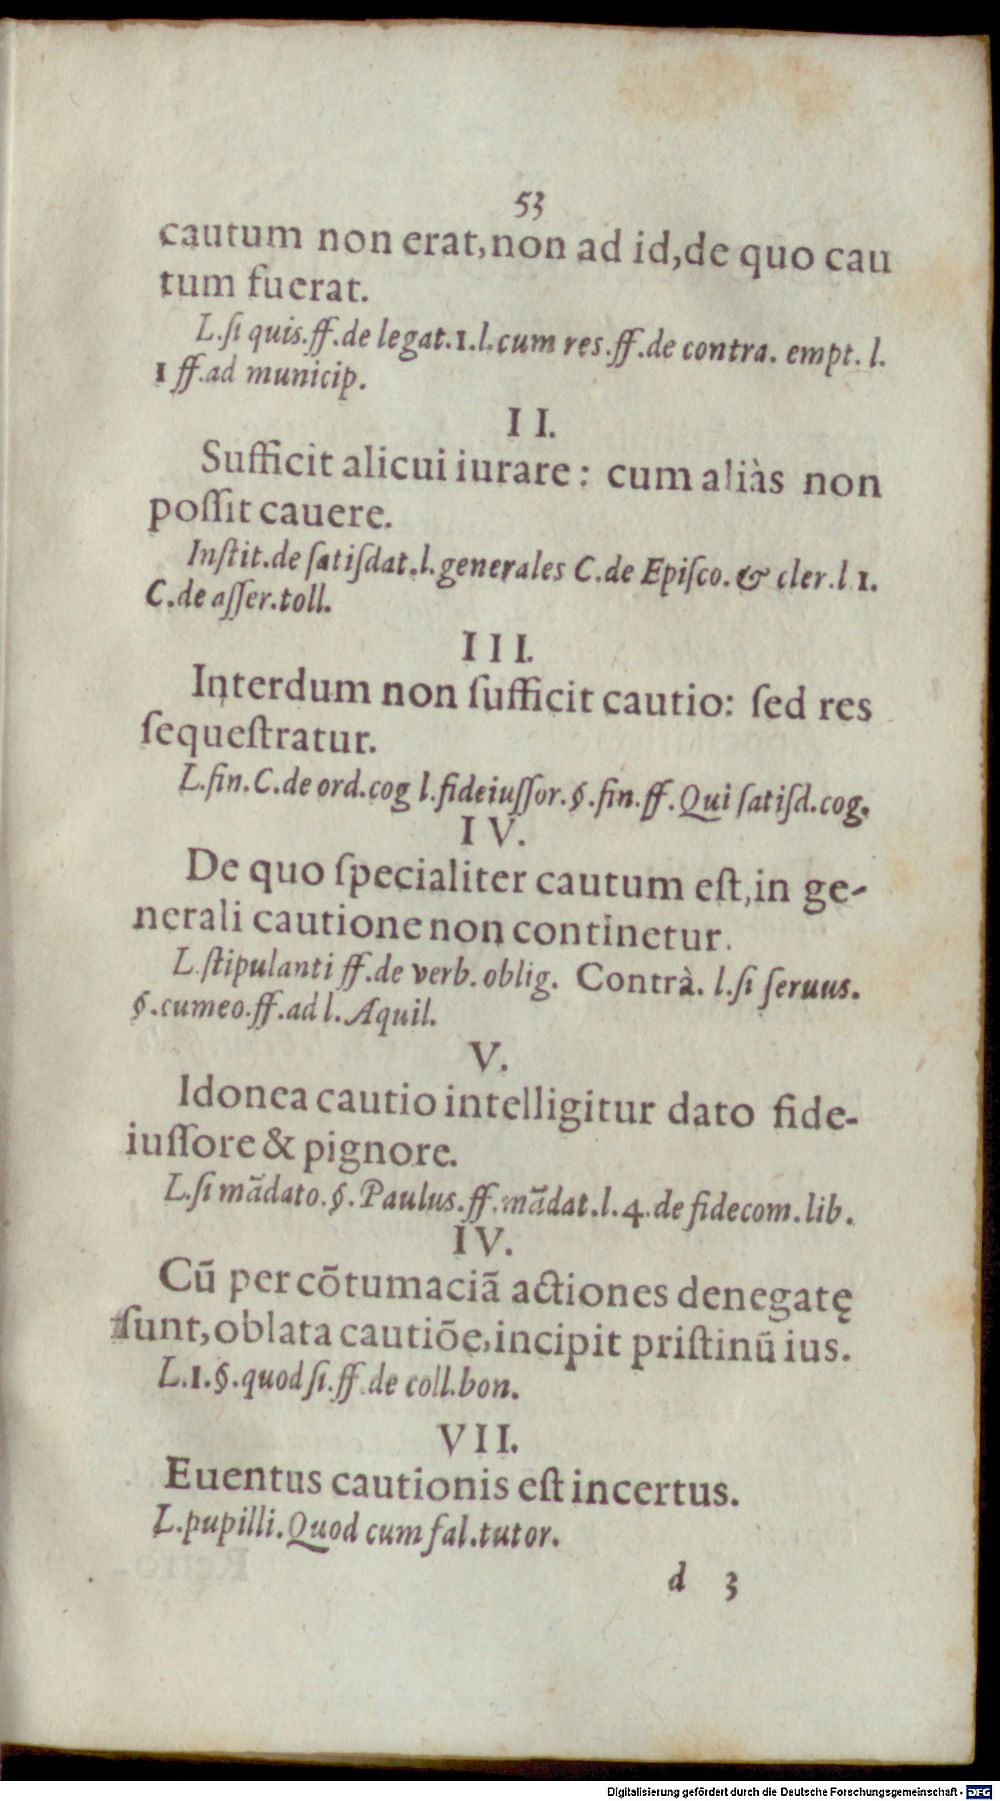 53
cautum non erat, non ad id, de quo cau
tum fuerat.
L.ſi quis.ff.de legat.1.l.cum res.ff.de contra. empt. l.
1 ff.ad municip.
I I.
Sufficit alicui iurare: cum aliàs non
poſſit cauere.
Inſtit.de ſatiſdat.l.generales C.de Epiſco. & cler.l 1.
C.de aſſer.toll.
I I I.
Interdum non ſufficit cautio: ſed res
ſequeſtratur.
L.fin.C.de ord.cog l.fideiuſſor.§.fin.ff.Qui ſatiſd.cog.
I V.
De quo ſpecialiter cautum eſt, in ge-
nerali cautione non continetur.
L.ſtipulanti ff.de verb.oblig. Contrà. l.ſi ſeruus.
§.cumeo.ff.ad l. Aquil.
V.
Idonea cautio intelligitur dato fide-
iuſſore & pignore.
L.ſi mãdato.§.Paulus.ff.mãdat.l.4.de fidecom.lib.
I V.
Cũ per cõtumaciã actiones denegatę
ſunt, oblata cautiõe, incipit priſtinũ ius.
L.1.§.quod ſi.ff.de coll.bon.
V I I.
Euentus cautionis eſt incertus.
L.pupilli.Quod cum fal.tutor.
d 3
Digitalisierung gefördert durch die Deutsche Forschungsgemeinschaft - DFG